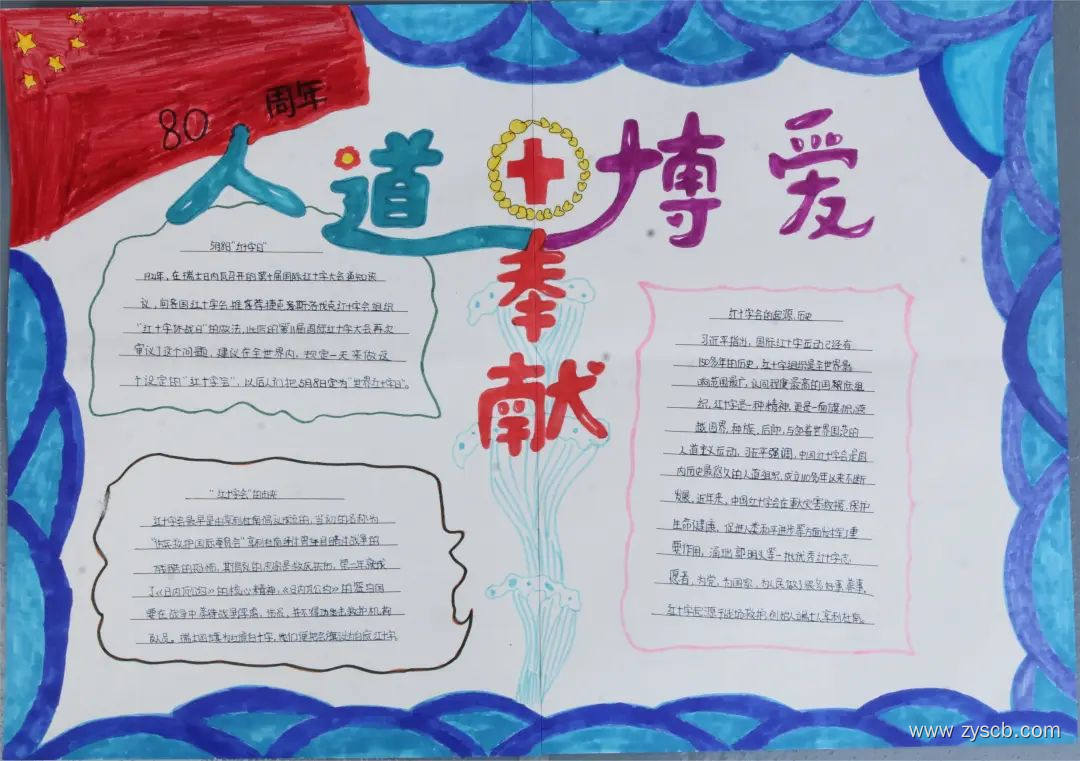 80 周年
人道 博爱
奉献
5月8日"红十字日"
1921年,在瑞士日内瓦召开的第十届国际红十字大会通知决
议,向各国红十字会推荐捷克斯洛伐克红十字会组织
"红十字休战日"的做法,此后的第11届国际红十字大会再次
审议了这个问题,建议在全世界内,规定一天来做这
个设定的"红十字日",以后人们把5月8日定为"世界红十字日"。
"红十字会"的由来
红十字会最早是由亨利杜南倡议成立的,当初的名称为
"伤兵救护国际委员会"亨利杜南
残酷的恐怖,
了《日内瓦公约》的核心精神,《日内瓦公约》的签约国
要在战争中
队员。瑞士国旗为红底白十字,
红十字会的起源、历史
习近平指出,国际红十字运动已经有
150多年的历史,红十字组织是全世界影
响范围最广,认同程度最高的国际组
织,红十字是一种精神,更是一面旗帜,跨
越国界、种族、信仰,与
人道主义运动。习近平强调,中国红十字会是国
内历史最悠久的人道组织,成立110多年以来不断
发展,近年来,中国红十字会在重大灾害救援、保护
生命健康、促进人类和平进步等方面发挥了重
要作用,涌现郭明义等一批优秀红十字志
愿者,为党、为国家、为人民做了很多好事善事,
红十字起源于战场救护,创始人瑞士人亨利杜南。
www.zyscb.com